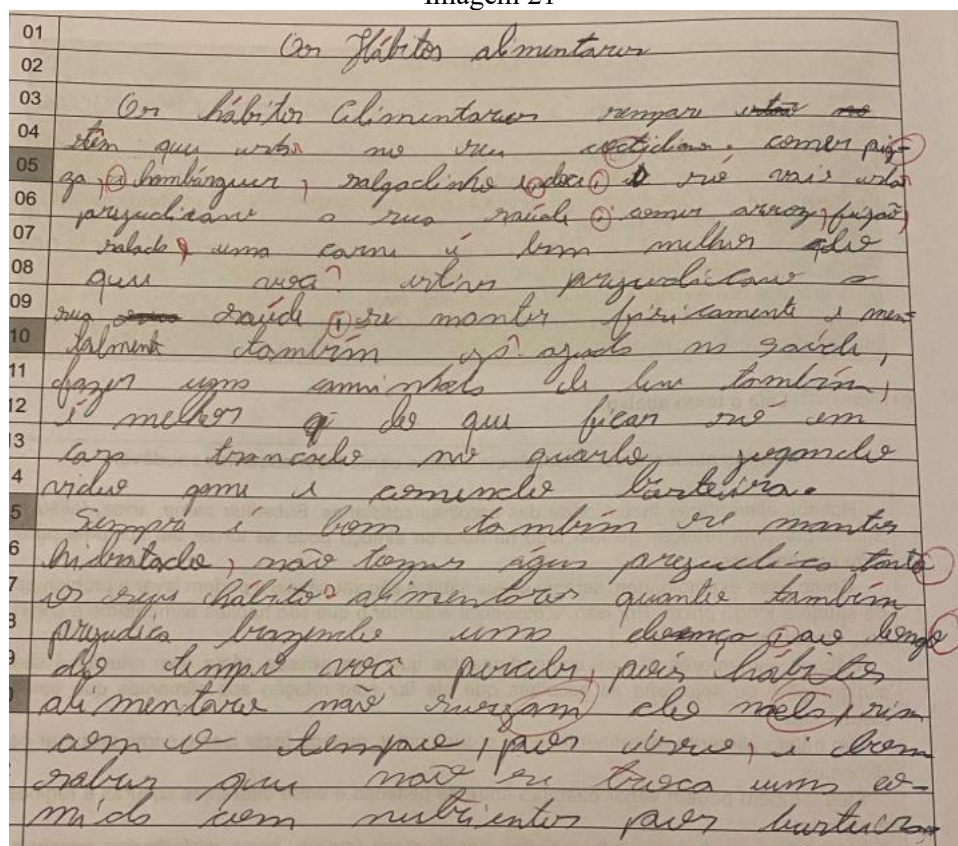 Imagem 21
01 Os Hábitos alimentares
02
03 Os hábitos alimentares sempre
04 têm que estar no seu cotidiano. comer piz-
05 za, hambúrguer, salgadinho e doce só vais estar
06 prejudicano a sua saúde comer arroz, feijão,
07 salada uma carne é bem melhor do
08 que você? estive prejudicano a
09 sua saúde se manter fisicamente e men-
10 talment também ajuda na saúde,
11 fazer uma caminhada de leve também,
12 é melhor do que ficar só em
3 casa trancado no quarto jogando
4 video game e comendo besteira.
5 Sempre é bom também se manter
6 hidratado, não tomar água prejudica tanto
7 os seus hábitos alimentares quanto também
8 prejudica trazendo uma doença ao longo
9 do tempo você percebe, pois hábitos
alimentares não surgam do nada, sim
com o tempo, por isso, é bom
saber que não se troca uma co-
mida com nutrientes por besteira